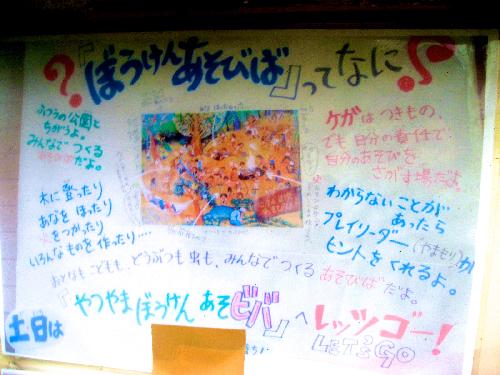 ?『ぼうけんあそびば』ってなに?
ふつうの公園と
ちがうよ。
みんなで つくる
あそびばだよ。
木に登ったり
あなを ほったり
火をつかったり
いろんなものを作ったり....
ケガは つきもの、
でも 自分の責任で、
自分のあそびを
さがす場だよ。
わからないことが
あったら
プレイリーダー(やまもり)が
ヒントをくれるよ。
おとなもこどもも、どうぶつも虫も、みんなでつくる あそびばだよ。
土日は
『やつやまぼうけんあそビバ』へ レッツゴー!
LET'S GO